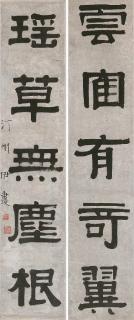 雲有竒翼
瑶草無塵根
汀州伊秉綬